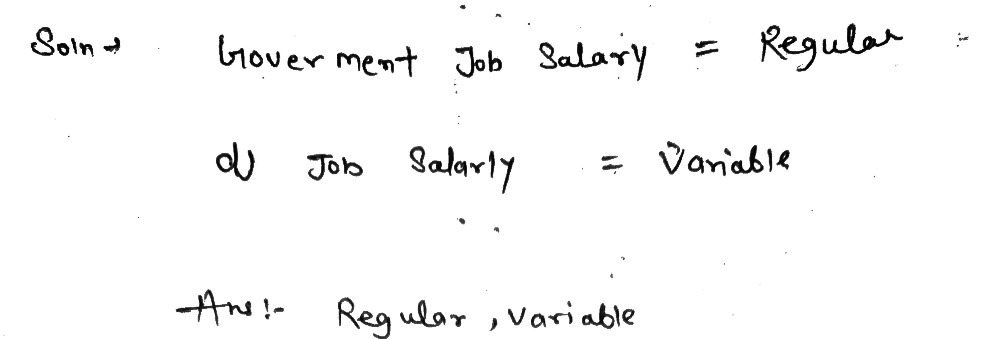 Soln → Goverment Job Salary = Regular
d) Job Salarly = Variable
Ans :- Regular , Variable